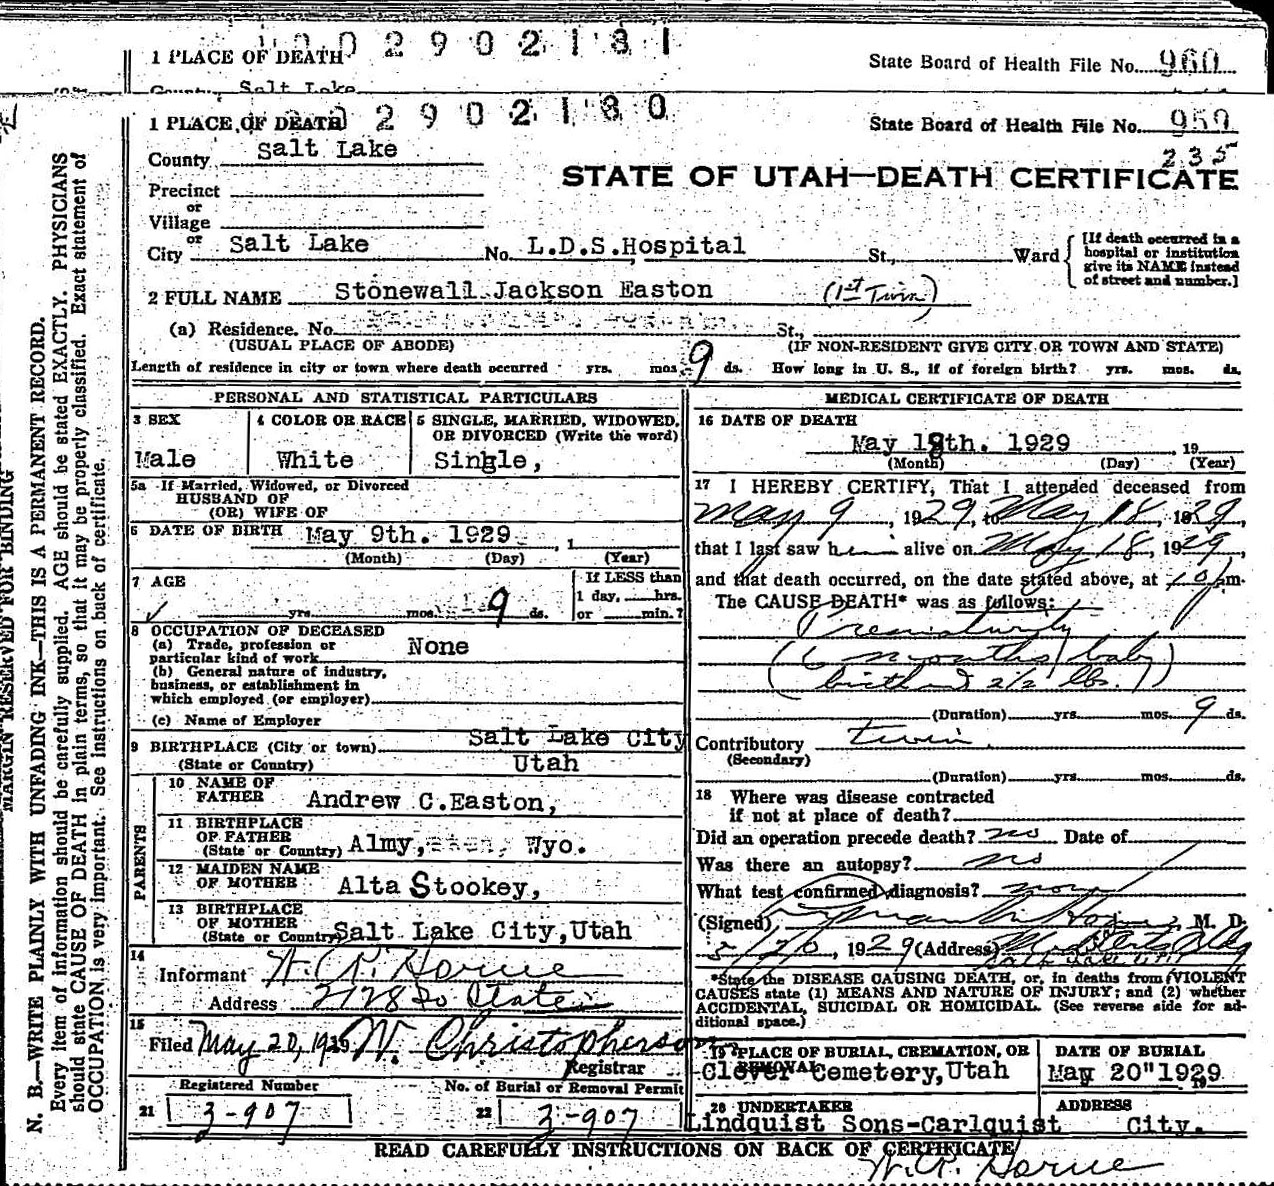 1 PLACE OF DEATH 0029021 8 1 State Board of Health File No. 960
County Salt Lake
1 PLACE OF DEATH 29021 8 0 State Board of Health File No. 959
235
County Salt Lake
STATE OF UTAH—DEATH CERTIFICATE
Precinct
or
Village
or
City Salt Lake No. L.D.S.Hospital St., Ward [If death occurred in a hospital or institution give its NAME instead of street and number.]
2 FULL NAME Stonewall Jackson Easton (1st Twin)
(a) Residence. No. St.,
(USUAL PLACE OF ABODE) (IF NON-RESIDENT GIVE CITY OR TOWN AND STATE)
Length of residence in city or town where death occurred yrs. mos. 9 ds. How long in U. S., if of foreign birth? yrs. mos. ds.
PERSONAL AND STATISTICAL PARTICULARS
3 SEX
Male
4 COLOR OR RACE
White
5 SINGLE, MARRIED, WIDOWED, OR DIVORCED (Write the word)
Single,
5a If Married, Widowed, or Divorced
HUSBAND OF
(OR) WIFE OF
6 DATE OF BIRTH May 9th. 1929 , 1
(Month) (Day) (Year)
7 AGE
yrs. mos. 9 ds.
If LESS than
1 day, hrs.
or min.?
8 OCCUPATION OF DECEASED
(a) Trade, profession or
particular kind of work None
(b) General nature of industry,
business, or establishment in
which employed (or employer)
(c) Name of Employer
9 BIRTHPLACE (City or town) Salt Lake City
(State or Country) Utah
PARENTS
10 NAME OF
FATHER Andrew C.Easton,
11 BIRTHPLACE
OF FATHER
(State or Country) Almy, Wyo.
12 MAIDEN NAME
OF MOTHER Alta Stookey,
13 BIRTHPLACE
OF MOTHER
(State or Country) Salt Lake City,Utah
14
Informant W. R. Horne
Address 2128 So State
15
Filed May 20, 1929 W. Christopherson
Registrar
Registered Number No. of Burial or Removal Permit
21 3-907 22 3-907
MEDICAL CERTIFICATE OF DEATH
16 DATE OF DEATH
May 18th. 1929 19
(Month) (Day) (Year)
17 I HEREBY CERTIFY, That I attended deceased from
May 9, 1929, to May 18, 1929,
that I last saw him alive on May 18, 1929,
and that death occurred, on the date stated above, at 10 m.
The CAUSE DEATH* was as follows:
Prematurity
(6 months baby)
(birth 2 1/2 lbs.)
(Duration) yrs. mos. 9 ds.
Contributory twin
(Secondary)
(Duration) yrs. mos. ds.
18 Where was disease contracted
if not at place of death?
Did an operation precede death? no Date of
Was there an autopsy? no
What test confirmed diagnosis?
(Signed) M. D.
5/20, 1929 (Address)
*State the DISEASE CAUSING DEATH, or, in deaths from VIOLENT
CAUSES state (1) MEANS AND NATURE OF INJURY; and (2) whether
ACCIDENTAL, SUICIDAL OR HOMICIDAL. (See reverse side for ad-
ditional space.)
19 PLACE OF BURIAL, CREMATION, OR REMOVAL
Clover Cemetery,Utah
DATE OF BURIAL
May 20" 1929
19
20 UNDERTAKER
Lindquist Sons-Carlquist
ADDRESS
City.
READ CAREFULLY INSTRUCTIONS ON BACK OF CERTIFICATE
W. R. Horne
MARGIN RESERVED FOR BINDING
N. B.—WRITE PLAINLY WITH UNFADING INK—THIS IS A PERMANENT RECORD.
Every item of information should be carefully supplied. AGE should be stated EXACTLY. PHYSICIANS
should state CAUSE OF DEATH in plain terms, so that it may be properly classified. Exact statement of
OCCUPATION is very important. See instructions on back of certificate.